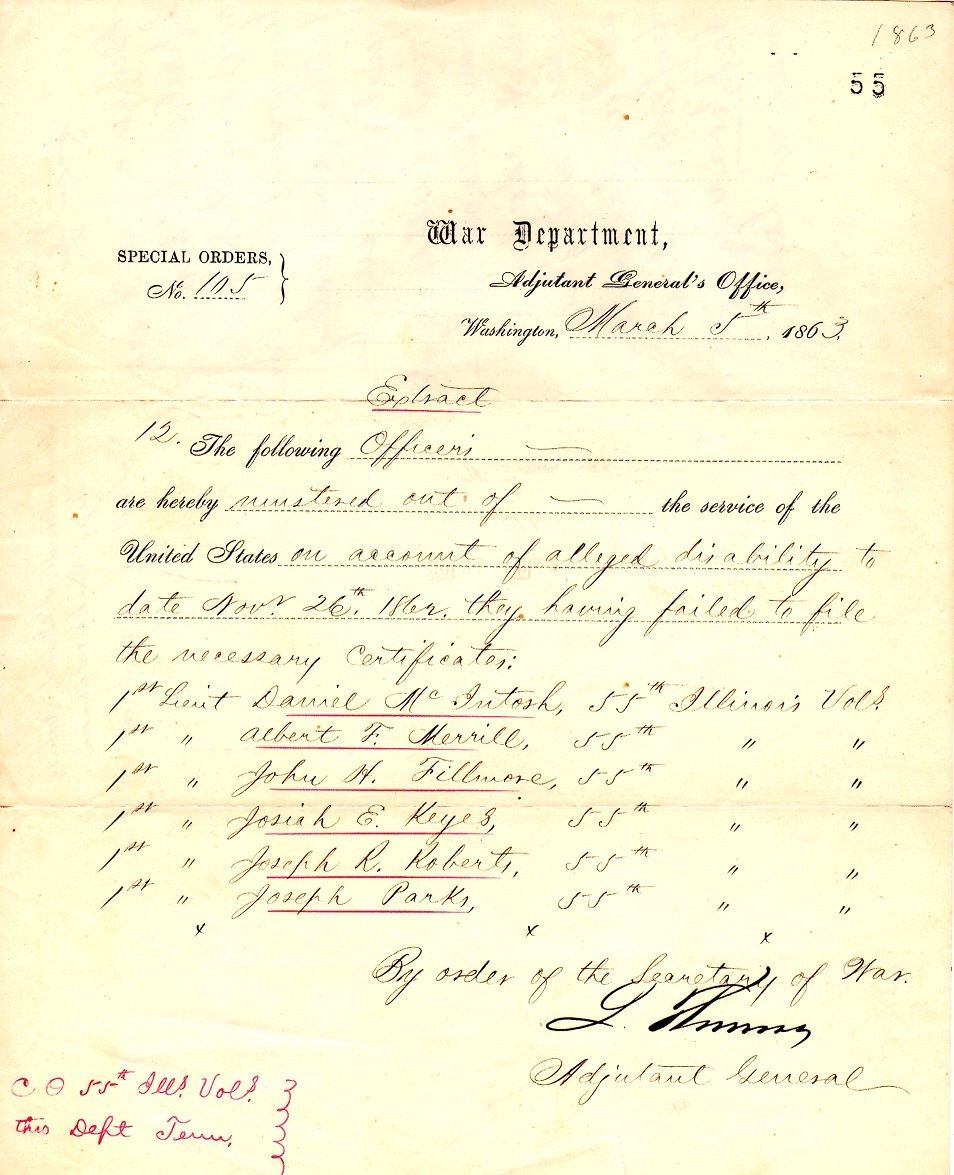 1863
55
War Department,
SPECIAL ORDERS,
No. 105
Adjutant General's Office,
Washington, March 5th, 1863.
Extract
12. The following Officers
are hereby mustered out of the service of the
United States on account of alleged disability to
date Novr 26th. 1862. they having failed to file
the necessary Certificates:
1st Lieut Daniel McIntosh, 55th Illinois Vols.
1st " Albert F. Merrill, 55th " "
1st " John H. Fillmore, 55th " "
1st " Josiah E. Keyes, 55th " "
1st " Joseph R. Roberts, 55th " "
1st " Joseph Parks, 55th " "
x x x
By order of the Secretary of War.
L. Thomas
Adjutant General
C O 55th Ills. Vols.
this Dept Tenn.